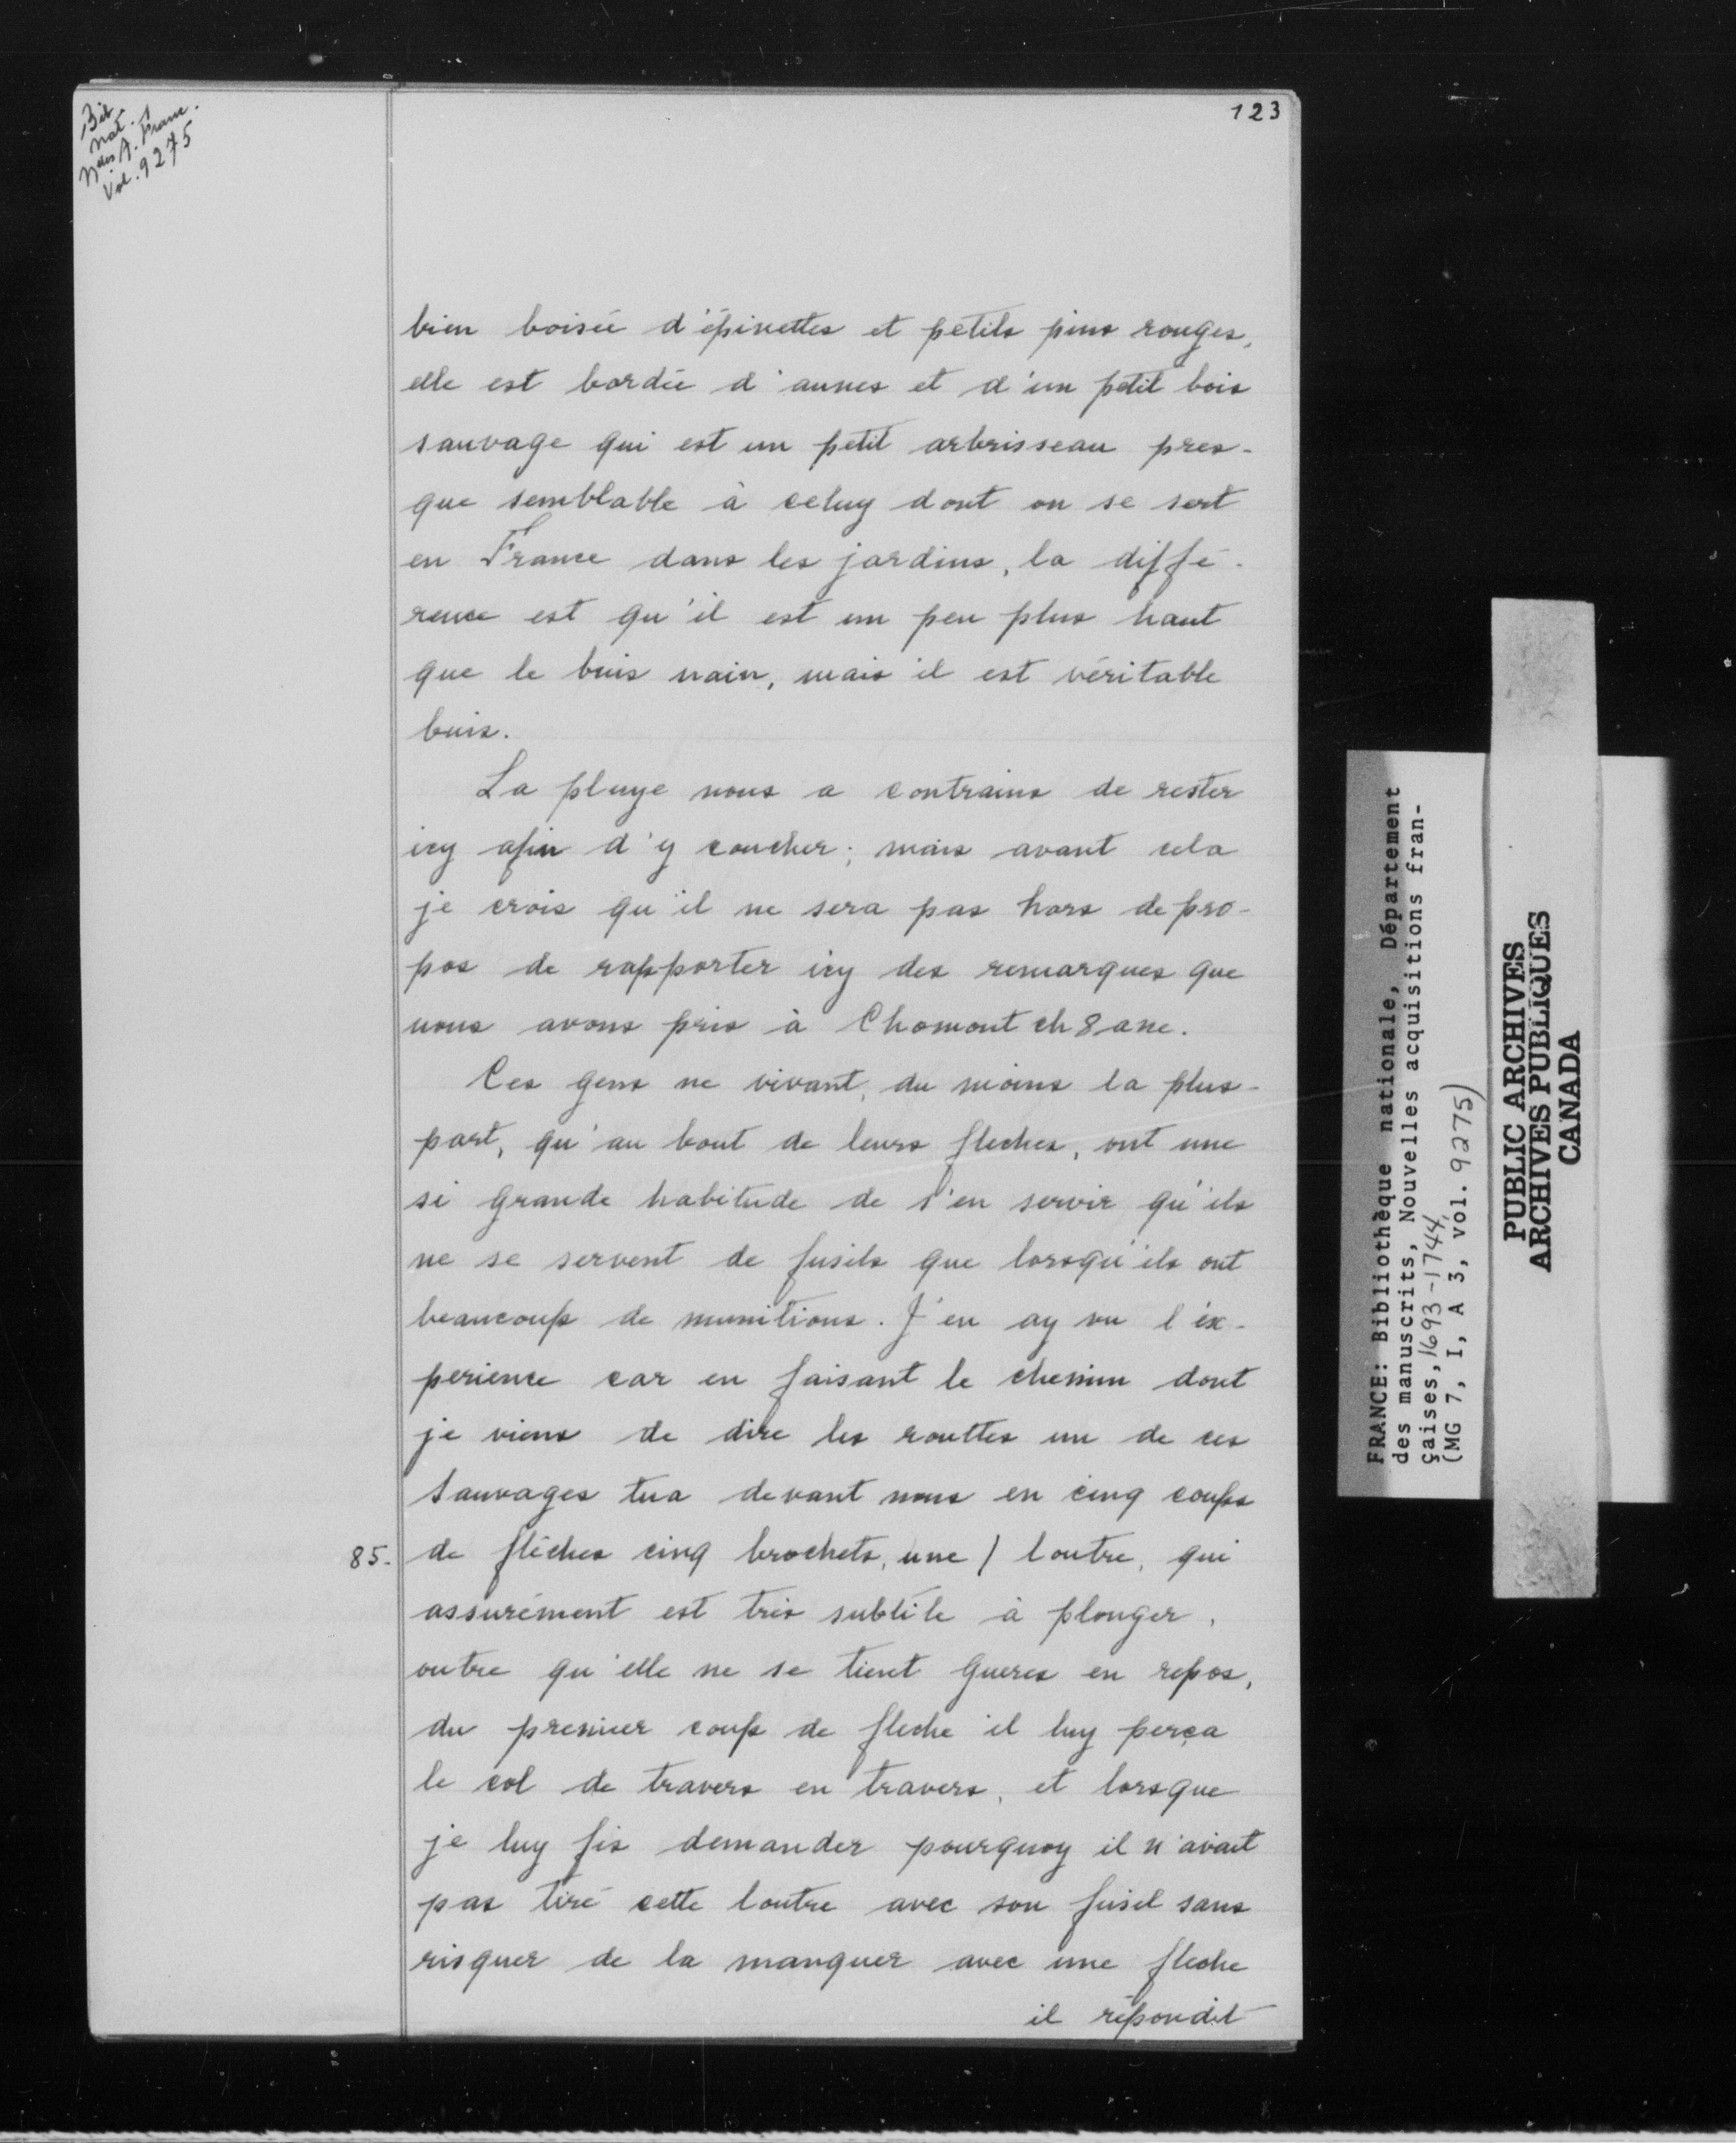 123
Bib.
nat.
Nlles A. Franc.
Vol. 9275
bien boisée d'épinettes et petits pins rouges,
elle est bordée d'aunes et d'un petit bois
sauvage qui est un petit arbrisseau pres-
que semblable à celuy dont on se sert
en France dans les jardins, la diffé-
rence est qu'il est un peu plus haut
que le buis nain, mais il est véritable
buis.
La pluye nous a contrains de rester
icy afin d'y coucher; mais avant cela
je crois qu'il ne sera pas hors de pro-
pos de rapporter icy des remarques que
nous avons pris à Chomontch8ane.
Ces gens ne vivant, du moins la plus-
part, qu'au bout de leurs fleches, ont une
si grande habitude de s'en servir qu'ils
ne se servent de fusils que lorsqu'ils ont
beaucoup de munitions. J'en ay vu l'ex-
perience car en faisant le chemin dont
je viens de dire les routtes un de ces
Sauvages tua devant nous en cinq coups
85. de flêches cinq brochets, une / loutre, qui
assurément est très subtile à plonger,
outre qu'elle ne se tient gueres en repos,
du premier coup de fleche il luy perça
le col de travers en travers, et lorsque
je luy fis demander pourquoy il n'avait
pas tiré cette loutre avec son fusil sans
risquer de la manquer avec une fleche
il répondit
FRANCE: Bibliothèque nationale, Département
des manuscrits, Nouvelles acquisitions fran-
çaises, 1693-1744,
(MG 7, I, A 3, vol. 9275)
PUBLIC ARCHIVES
ARCHIVES PUBLIQUES
CANADA